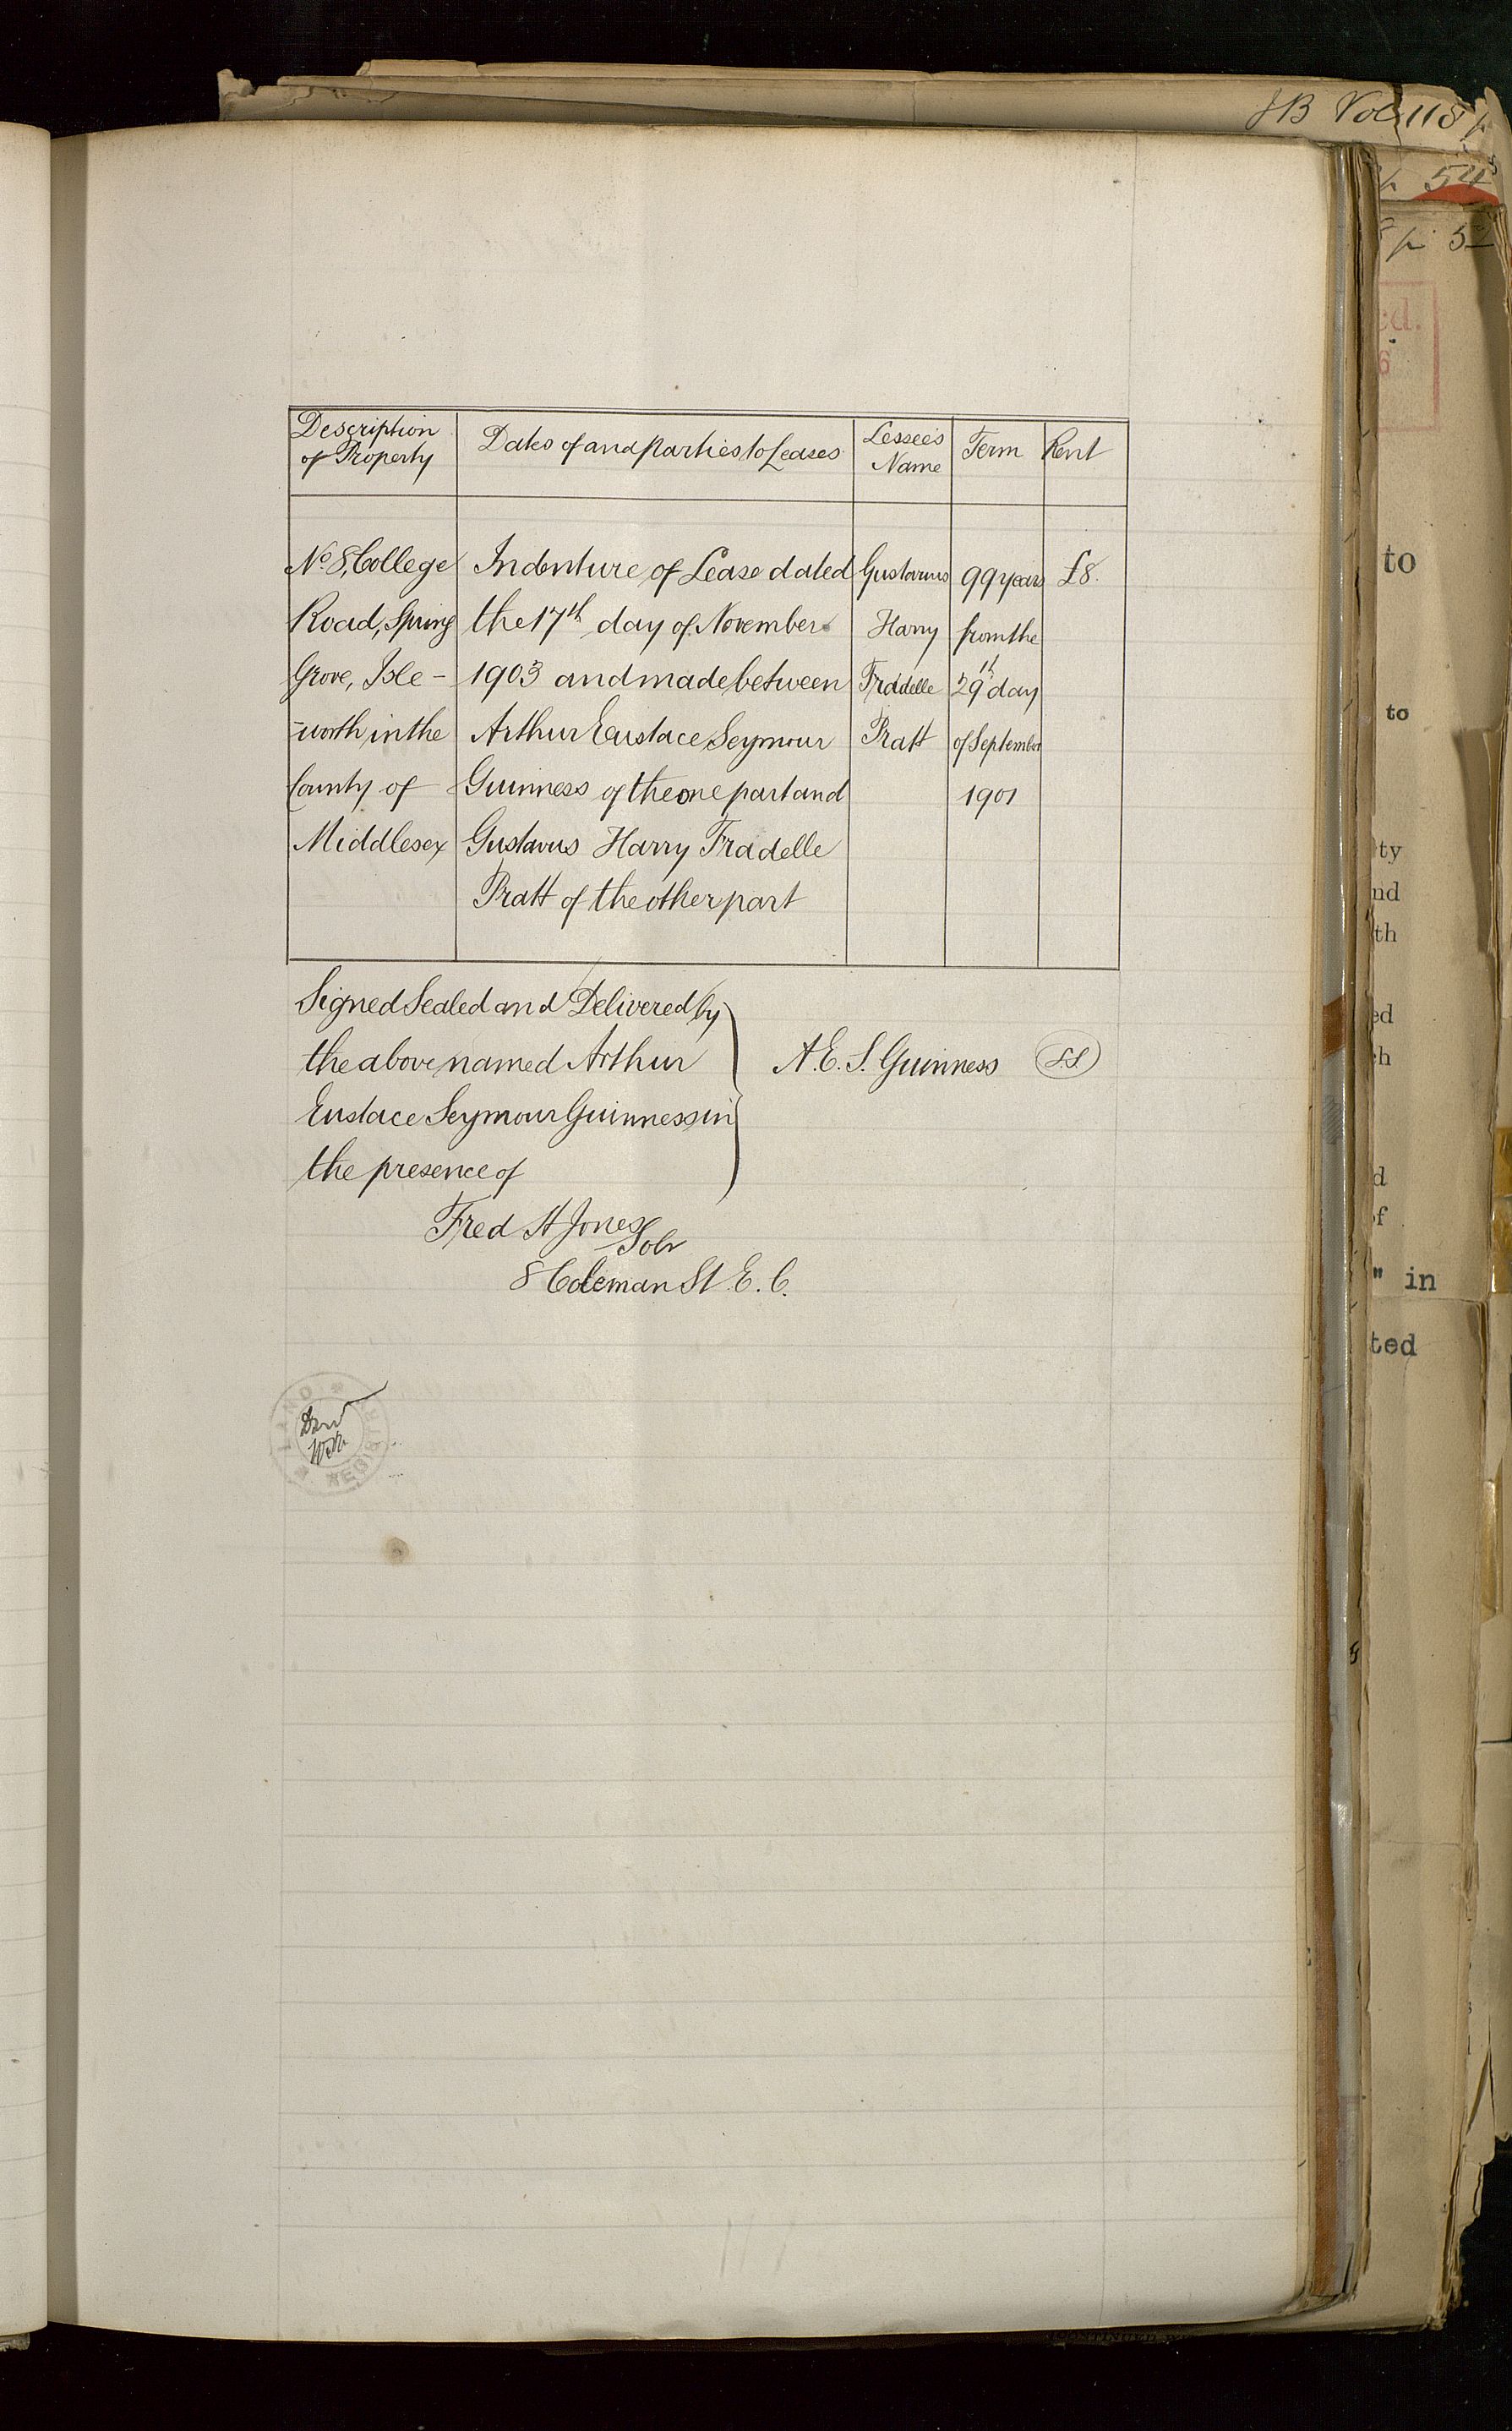 JB Vol 118 p
p 54
p 52
Description
of Property
Dates of and Parties to Leases
Lessee's
Name
Term
Rent
No. 8, College
Road, Spring
Grove, Isle-
-worth in the
County of
Middlesex
Indenture of Lease dated
the 17th day of November
1903 and made between
Arthur Eustace Seymour
Guinness of the one part and
Gustavus Harry Fradelle
Pratt of the other part
Gustavus
Harry
Fradelle
Pratt
99 years
from the
29th day
of September
1901
£8.
Signed Sealed and Delivered by
the above named Arthur
Eustace Seymour Guinness in
the presence of
A. E. S. Guinness L.S.
Fred H Jones
Solr
8 Coleman St. E. C.
LAND REGISTRY
ed.
6
to
to
ty
nd
th
ed
ch
d
of
" in
ted